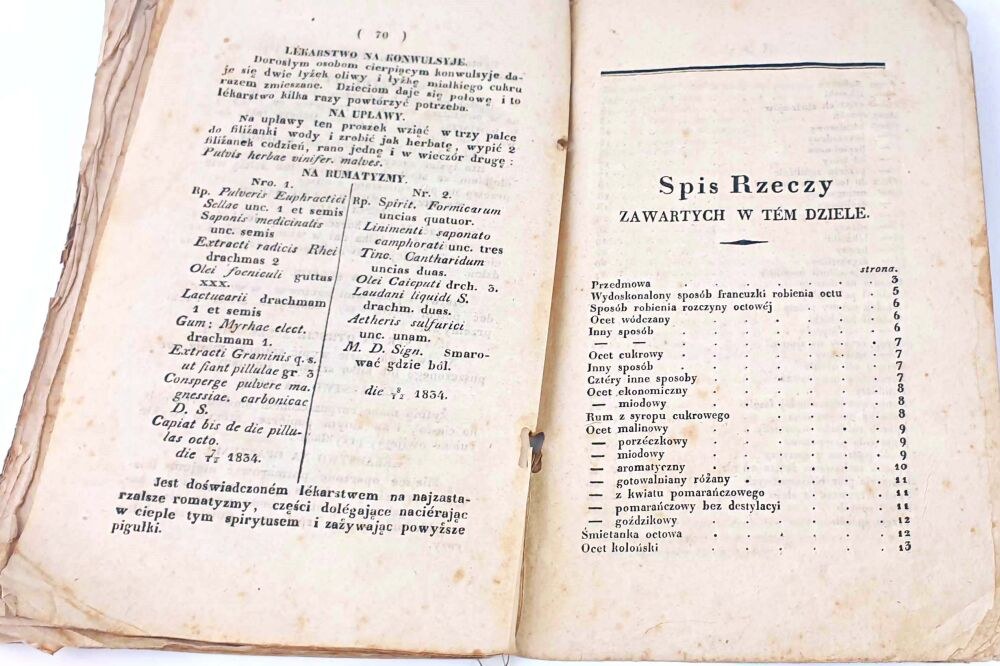 ( 70 )
LÉKARSTWO NA KONWULSYJE.
Dorosłym osobom cierpiącym konwulsyje da-
je się dwie łyżek oliwy i łyżkę miałkiego cukru
razem zmieszane. Dzieciom daje się połowę i to
lékarstwo kilka razy powtórzyć potrzeba.
NA UPŁAWY.
Na upławy ten proszek wziąć w trzy palce
do filiżanki wody i zrobić jak herbatę, wypić 2
filiżanek codzień, rano jednę i w wieczór drugę:
Pulvis herbae vinifer. malves.
NA RUMATYZMY.
Nro. 1.
Rp. Pulveris Euphractici
Sellae unc. 1 et semis
Saponis medicinalis
unc. semis
Extracti radicis Rhei
drachmas 2
Olei foeniculi guttas
xxx.
Lactucarii drachmam
1 et semis
Gum: Myrhae elect.
drachmam 1.
Extracti Graminis q. s.
ut fiant pillulae gr 3
Consperge pulvere ma-
gnessiae. carbonicae
D. S.
Capiat bis de die pillu-
las octo.
die 7/12 1834.
Nr. 2.
Rp. Spirit. Formicarum
uncias quatuor.
Linimenti saponato
camphorati unc. tres
Tinc. Cantharidum
uncias duas.
Olei Caieputi drch. 3.
Laudani liquidi S.
drachm. duas.
Aetheris sulfurici
unc. unam.
M. D. Sign. Smaro-
wać gdzie ból.
die 8/12 1834.
Jest doświadczoném lékarstwem na najzasta-
rzalsze romatyzmy, części dolégające naciérając
w cieple tym spirytusem i zażywając powyższe
pigułki.
Spis Rzeczy
ZAWARTYCH W TÉM DZIELE.
strona.
Przedmowa . . . . . . 3
Wydoskonalony sposób francuzki robienia octu . 5
Sposób robienia rozczyny octowéj . . . . 6
Ocet wódczany . . . . . . 6
Inny sposób . . . . . . 6
— — . . . . . . 7
Ocet cukrowy . . . . . . 7
Inny sposób . . . . . . 7
Cztéry inne sposoby . . . . . 7
Ocet ekonomiczny . . . . . 8
— miodowy . . . . . . 8
Rum z syropu cukrowego . . . . . 8
Ocet malinowy . . . . . . 9
— porzéczkowy . . . . . 9
— miodowy . . . . . . 9
— aromatyczny . . . . . 10
— gotowalniany różany . . . . . 11
— z kwiatu pomarańczowego . . . . 11
— pomarańczowy bez destylacyi . . . . 11
— goździkowy . . . . . 12
Śmietanka octowa . . . . . 12
Ocet koloński . . . . . . 13